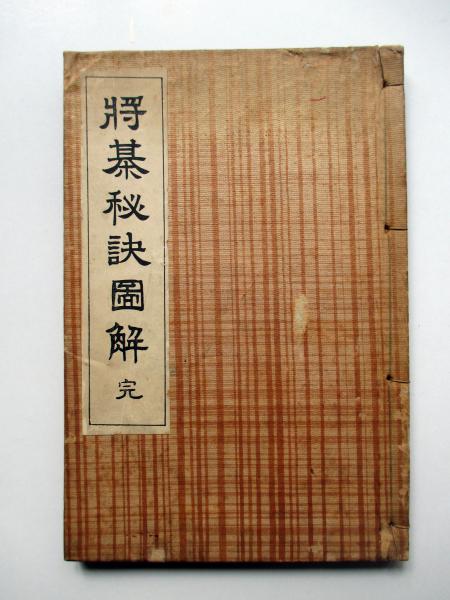 將棊秘訣圖解 完